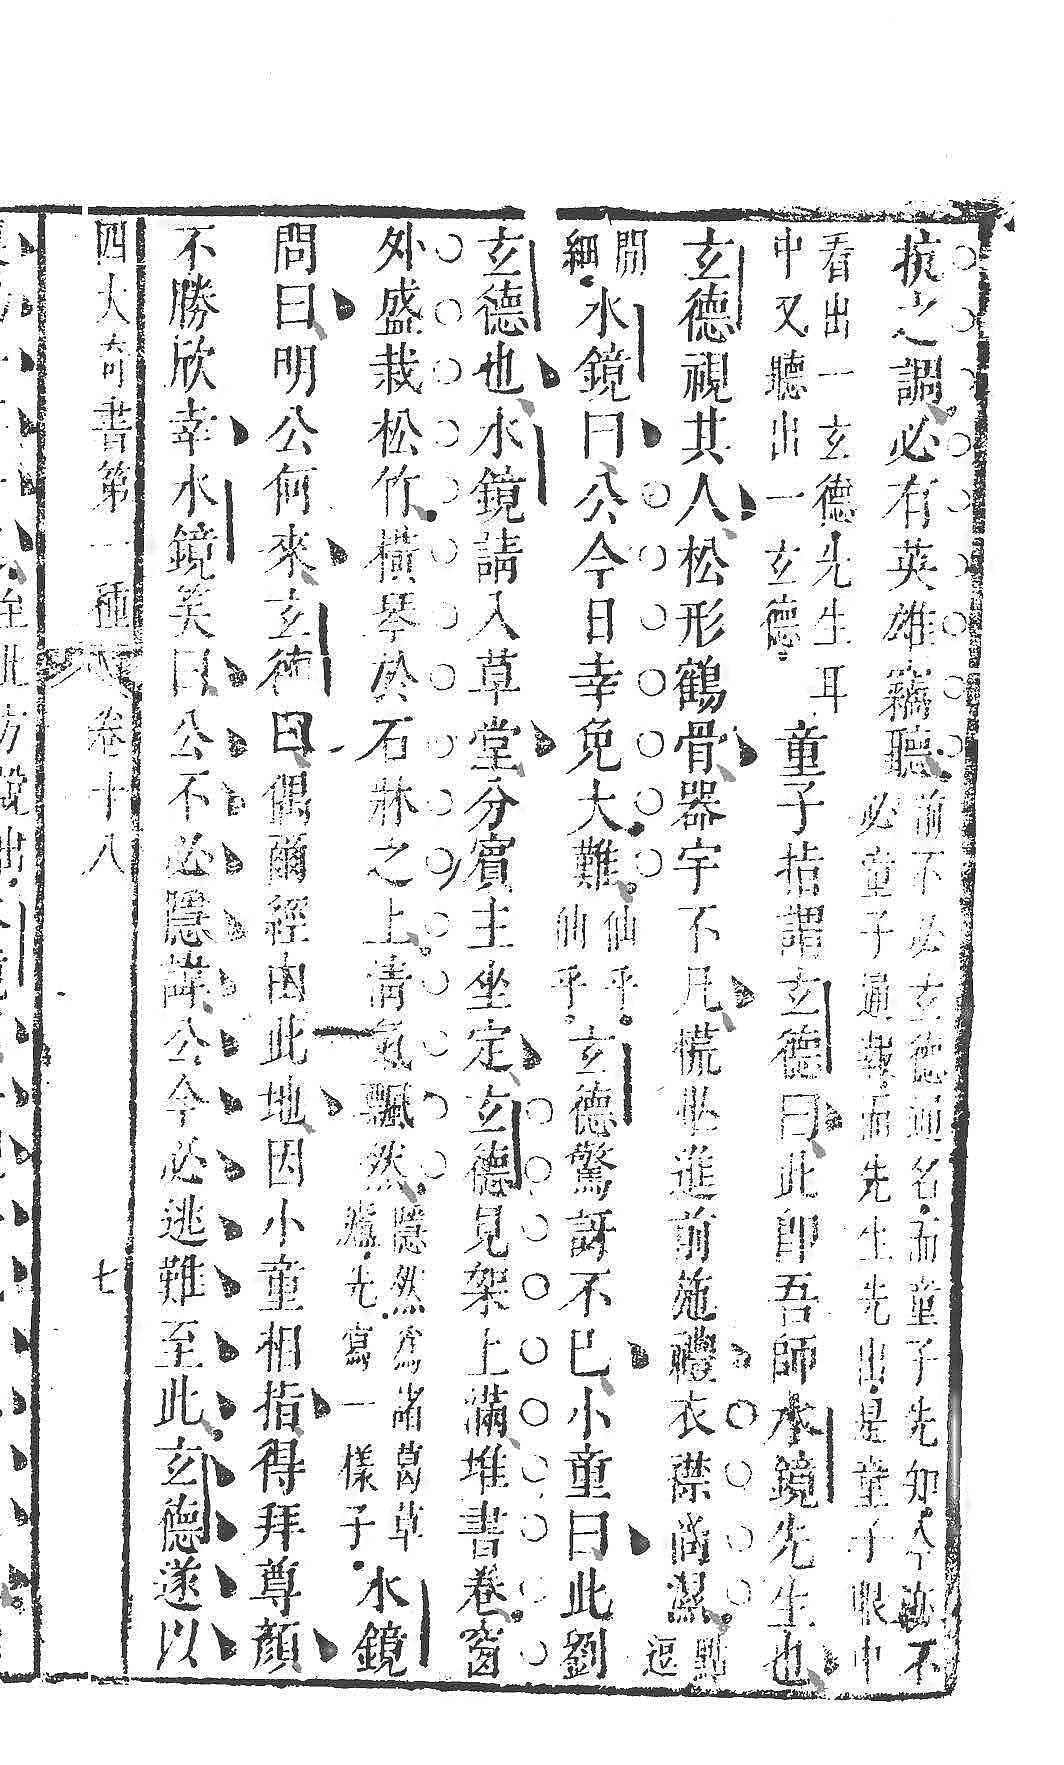 抗之調必有英雄竊聽前不必玄德通名而童子先知今亦不必童子通報而先生先出是童子眼中
看出一玄德先生耳中又聽出一玄德童子指謂玄德曰此卽吾師水鏡先生也
玄德視其人松形鶴骨器宇不凡慌忙進前施禮衣襟尚濕點逗
閒細水鏡曰公今日幸免大難仙乎仙乎玄德驚訝不已小童曰此劉
玄德也水鏡請入草堂分賓主坐定玄德見架上滿堆書卷窗
外盛栽松竹橫琴於石牀之上淸氣飄然隱然爲諸葛草廬先寫一樣子水鏡
問曰明公何來玄德曰偶爾經由此地因小童相指得拜尊顏
不勝欣幸水鏡笑曰公不必隱諱公今必逃難至此玄德遂以
四大奇書第一種 卷十八 七
至此方說出